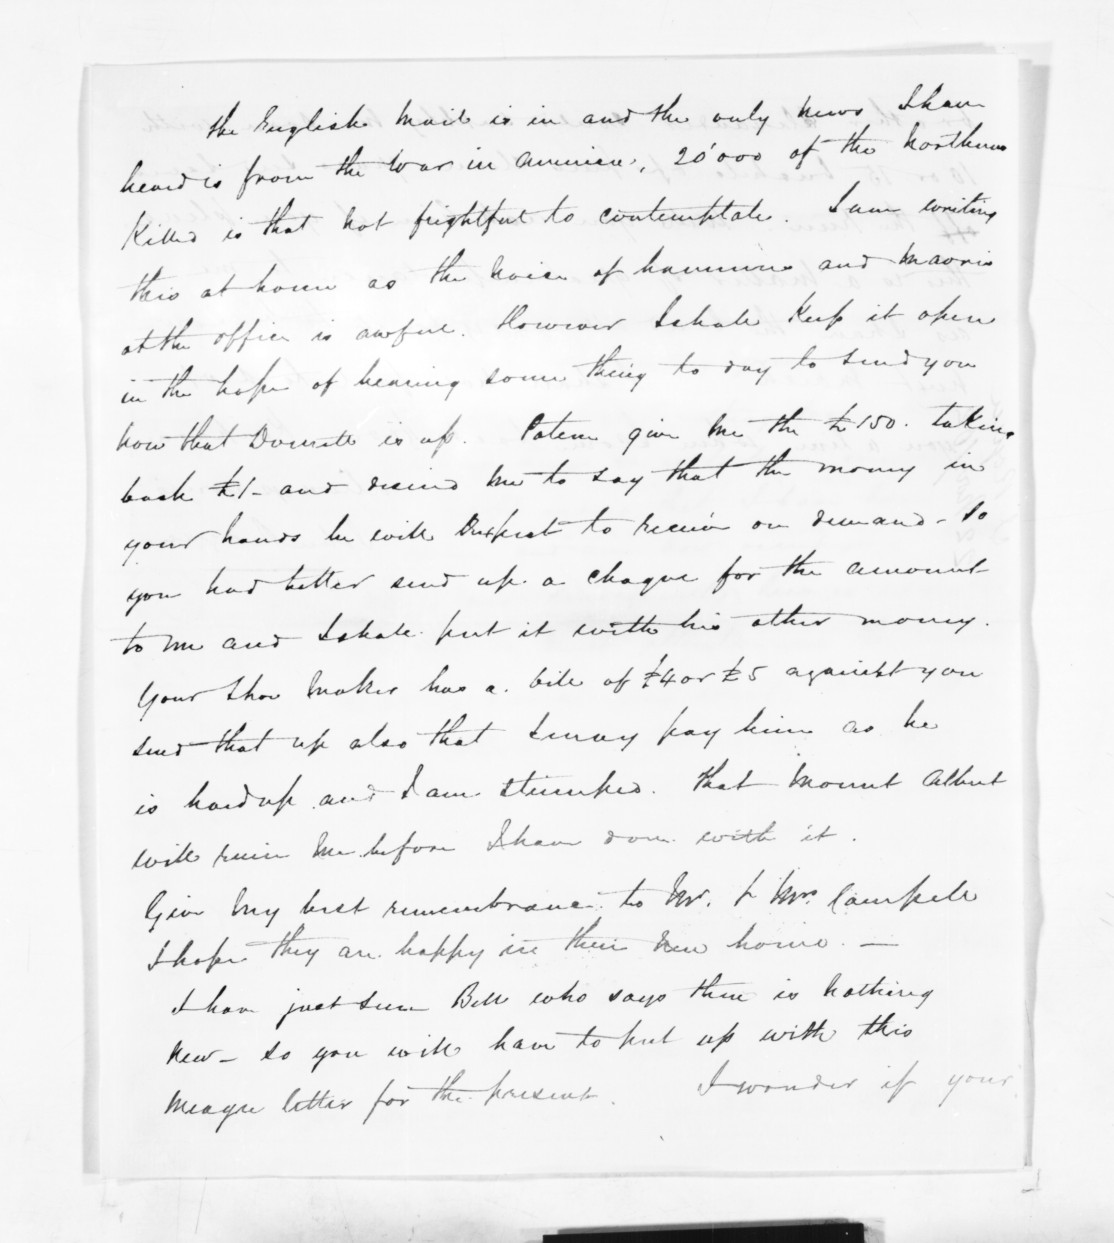 The English Mail is in and the only news I have
heard is from the War in America, 20'000 of the Northerns
Killed is that not frightful to contemplate. I am writing
this at home as the noise of hammering and Maoris
at the office is awful. However I shall keep it open
in the hope of hearing some thing to day to send you
now that Donald is up. Patene gave me the £150. taking
back £1 - and desired me to say that the money in
your hands he will Expect to receive on demand - So
you had better send up a cheque for the amount
to me and I shall put it with his other money.
Your Shoe Maker has a bill of £4 or £5 against you
send that up also that I may pay him as he
is hard up and I am stumped. That Mount Albert
will ruin me before I have done with it.
Give my best remembrance to Mr. & Mrs. Campbell
I hope they are happy in their new home. —
I have just seen Bell who says there is nothing
new - so you will have to put up with this
meagre letter for the present. I wonder if your